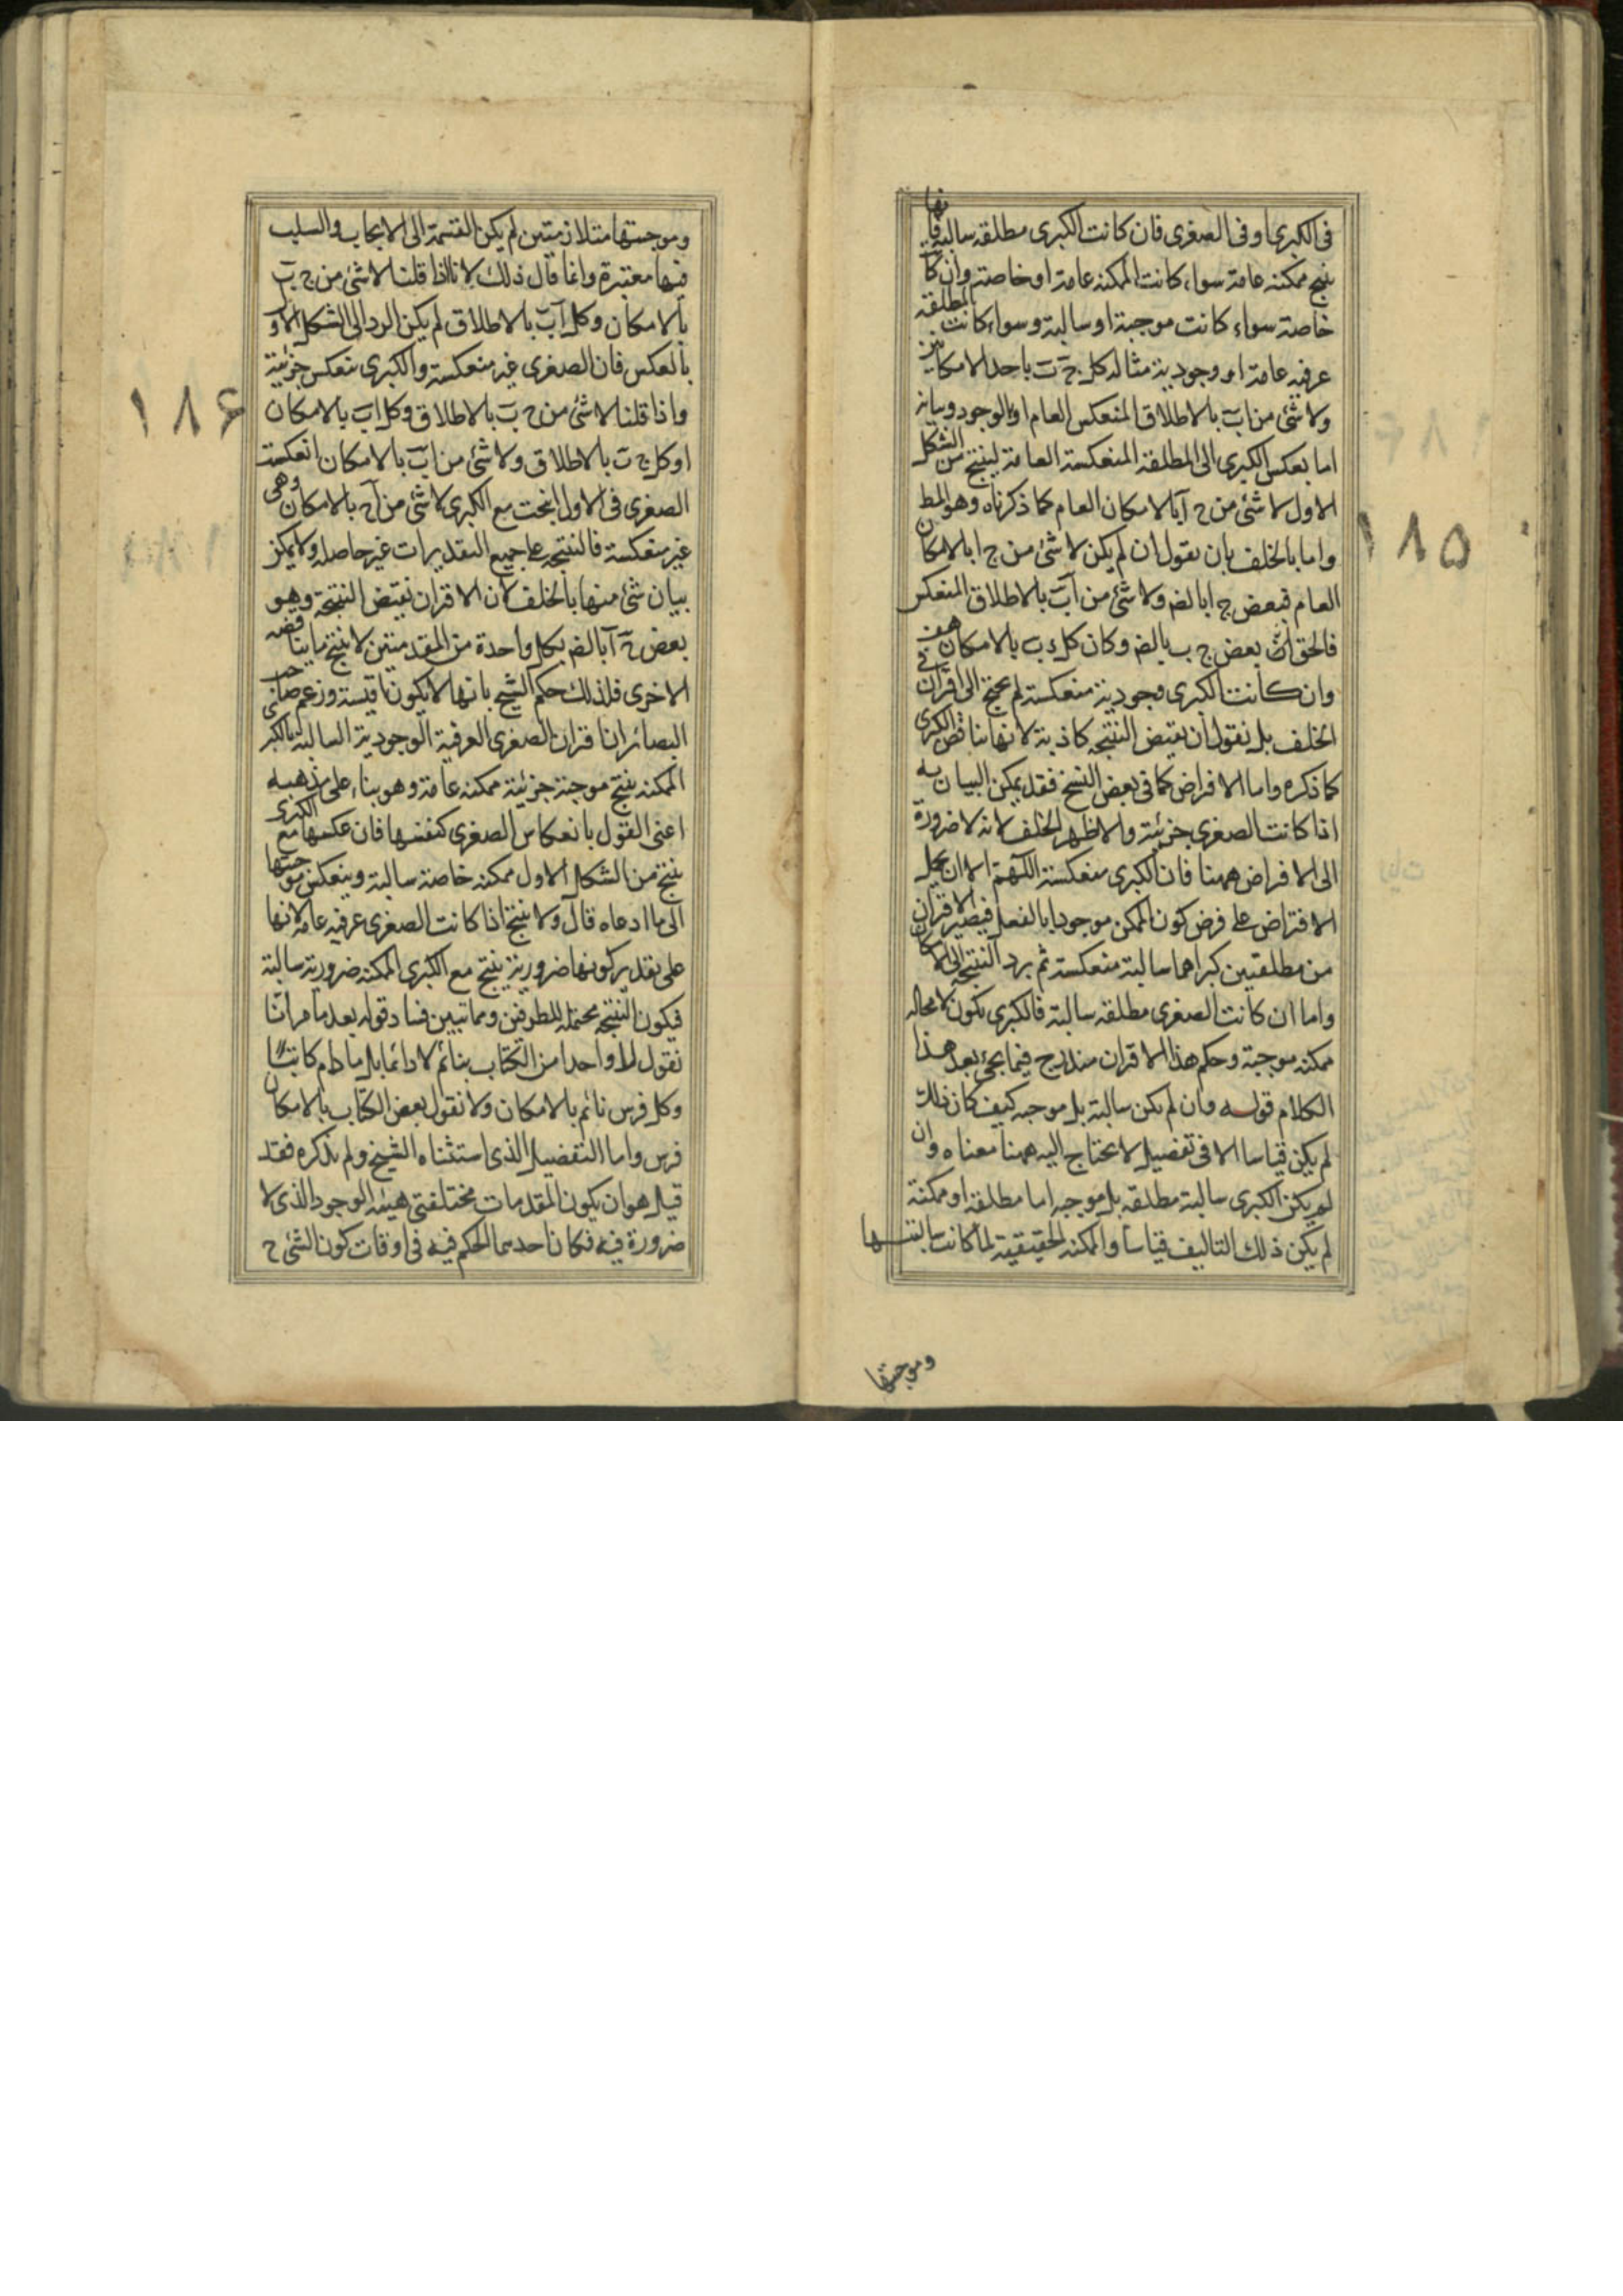 فى الكبرى او فى الصغرى فان كانت الكبرى مطلقه سالبة فانها
ينتج ممكنه عامة سواء كانت الممكنه عامة او خاصة وان كا
خاصة سواء كانت موجبة او سالبة وسواء كانت المطلقه
عرفيه عامة او وجودية مثاله كل ج ب باحد الامكانين
ولا شئ من اب بالاطلاق المنعكس العام او الوجود وبيانه
اما بعكس الكبرى الى المطلقة المنعكسة العامة لينتج من الشكل
الاول لا شئ من ج ا بالامكان العام كما ذكرناه وهو المط
واما بالخلف بان نقول ان لم يكن لا شئ من ج ا بالامكان
العام فبعض ج ا بالضر ولا شئ من اب بالاطلاق المنعكس
فالحق ان بعض ج ب بالضر وكان كل ج ب بالامكان هف
وان كانت الكبرى وجودية منعكسة لم يحتج الى اقتران فى
الخلف بل نقول ان نقيض النتيجه كاذبة لانها تناقض الكبرى
كما ذكره واما الافراض كما فى بعض النسخ فقد يمكن البيان به
اذا كانت الصغرى جزئية والاظهر الخلف لانه لا ضرورة
الى الافراض ههنا فان الكبرى منعكسة اللهم الا ان يحمل
الافتراض على فرض كون الممكن موجودا بالفعل فيصير الاقتران
من مطلقتين كبراهما سالبة منعكسة ثم يرد النتيجه الى الامكان
واما ان كانت الصغرى مطلقه سالبة فالكبرى يكون لا محاله
ممكنه موجبة وحكم هذا الاقتران مندرج فيما يجئ بعد هذا
الكلام قوله وان لم يكن سالبة بل موجبه كيف كان ذلك
لم يكن قياسا الا فى تفصيل لا يحتاج اليه ههنا معناه وان
لم يكن الكبرى سالبة مطلقه بل موجبه اما مطلقة او ممكنة
لم يكن ذلك التاليف قياسا والممكنه الحقيقية لما كانت سالبتها
وموجبتها
١٨٥
وموجبتها متلازمتين لم يكن القسمة الى الايجاب والسلب
فيها معتبرة وانما قال ذلك لانا اذا قلنا لا شئ من ج ب
بالامكان وكل اب بالاطلاق لم يكن الرد الى الشكل الاول
بالعكس فان الصغرى غير منعكسة والكبرى ينعكس جزئية
واذا قلنا لا شئ من ج ب بالاطلاق وكل اب بالامكان
او كل ج ب بالاطلاق ولا شئ من اب بالامكان انعكست
الصغرى فى الاول انتجت مع الكبرى لا شئ من ا ج بالامكان وهى
غير منعكسة فالنتيجه على جميع التقديرات غير حاصله ولا يمكن
بيان شئ منها بالخلف لان الاقتران نقيض النتيجة وهو
بعض ج ا بالضر بكل واحدة من المقدمتين لا ينتج ما يناقضه
الاخرى فلذلك حكم الشيخ بانها لا يكون اقيسة وزعم صاحب
البصائر ان اقتران الصغرى العرفية الوجودية السالبة بالكبرى
الممكنه ينتج موجبة جزئية ممكنه عامة وهو بناء على مذهبه
اعنى القول بانعكاس الصغرى كنفسها فان عكسها مع الكبرى
ينتج من الشكل الاول ممكنه خاصة سالبة وينعكس موجبتها
الى ما ادعاه قال ولا ينتج اذا كانت الصغرى عرفيه عامه لانها
على تقدير كونها ضرورية ينتج مع الكبرى الممكنه ضرورية سالبة
فيكون النتيجه محتمله للطرفين ومما تبين فساد قوله بعد ما مر انا
نقول لا واحدا من الكتاب بنائم لا دائما بل ما دام كاتبا
وكل فرس نائم بالامكان ولا نقول بعض الكتاب بالامكان
فرس واما التفصيل الذى استثناه الشيخ ولم يذكره فقد
قيل هو ان يكون المقدمات مختلفتى هيئة الوجود الذى لا
ضرورة فيه فكان احديهما الحكم فيه فى اوقات كون الشئ ج
١٨۶